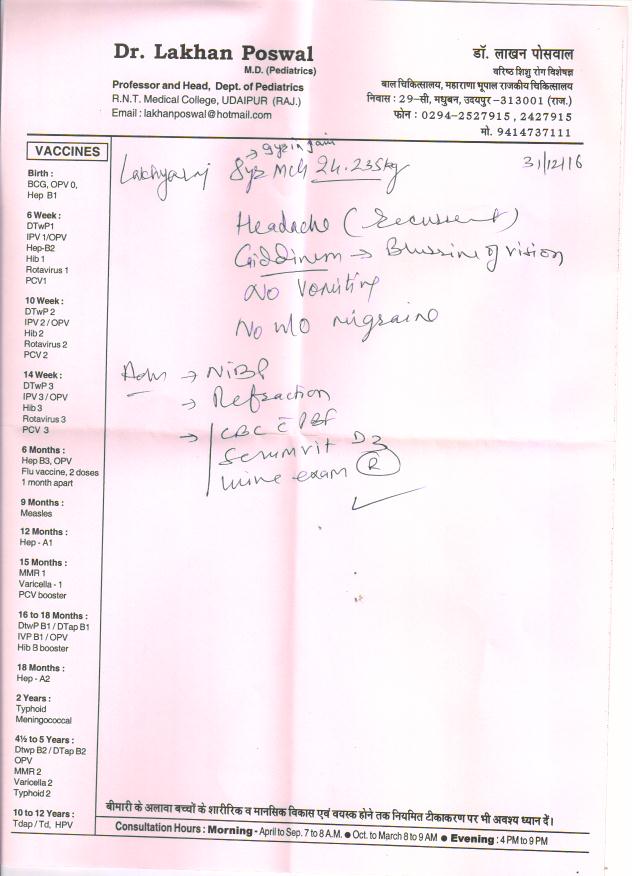 Dr. Lakhan Poswal
M.D. (Pediatrics)
Professor and Head, Dept. of Pediatrics
R.N.T. Medical College, UDAIPUR (RAJ.)
Email : lakhanposwal@hotmail.com
डॉ. लाखन पोसवाल
वरिष्ठ शिशु रोग विशेषज्ञ
बाल चिकित्सालय, महाराणा भूपाल राजकीय चिकित्सालय
निवास : 29-सी, मधुबन, उदयपुर-313001 (राज.)
फोन : 0294-2527915, 2427915
मो. 9414737111
31/12/16
8yr Mch 24.235kg
Headache (Recurrent)
Giddiness → Blurring of vision
No vomiting
No migraine
Adv → NIBP
→ Refraction
→ CBC c̄ PBF
Serum vit D3
Urine exam (R)
VACCINES
Birth :
BCG, OPV 0,
Hep B1
6 Week :
DTwP1
IPV 1/OPV
Hep-B2
Hib 1
Rotavirus 1
PCV1
10 Week :
DTwP 2
IPV 2 / OPV
Hib 2
Rotavirus 2
PCV 2
14 Week :
DTwP 3
IPV 3 / OPV
Hib 3
Rotavirus 3
PCV 3
6 Months :
Hep B3, OPV
Flu vaccine, 2 doses
1 month apart
9 Months :
Measles
12 Months :
Hep - A1
15 Months :
MMR 1
Varicella - 1
PCV booster
16 to 18 Months :
DtwP B1 / DTap B1
IVP B1 / OPV
Hib B booster
18 Months :
Hep - A2
2 Years :
Typhoid
Meningococcal
4½ to 5 Years :
Dtwp B2 / DTap B2
OPV
MMR 2
Varicella 2
Typhoid 2
10 to 12 Years :
Tdap / Td, HPV
बीमारी के अलावा बच्चों के शारीरिक व मानसिक विकास एवं वयस्क होने तक नियमित टीकाकरण पर भी अवश्य ध्यान दें।
Consultation Hours : Morning - April to Sep. 7 to 8 A.M. ● Oct. to March 8 to 9 AM ● Evening : 4 PM to 9 PM